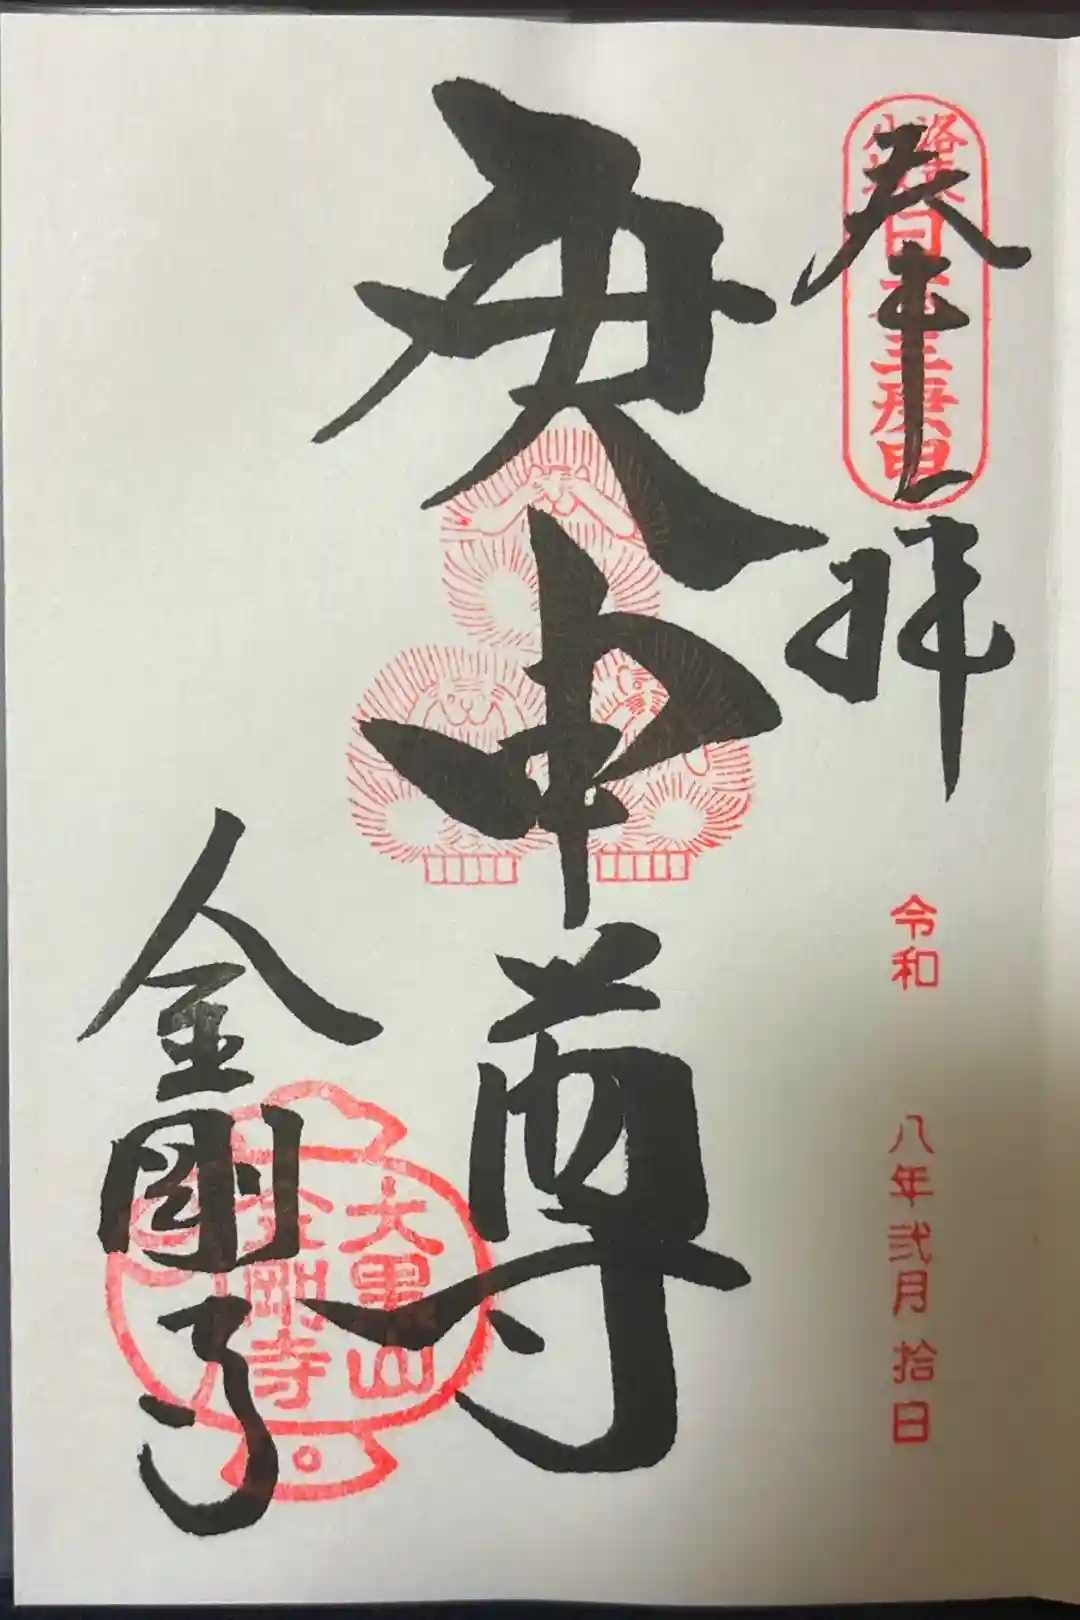 奉拝
洛東
八坂
日本三庚申
令和 八年弐月拾日
庚申尊
大黒山
金剛寺
金剛寺